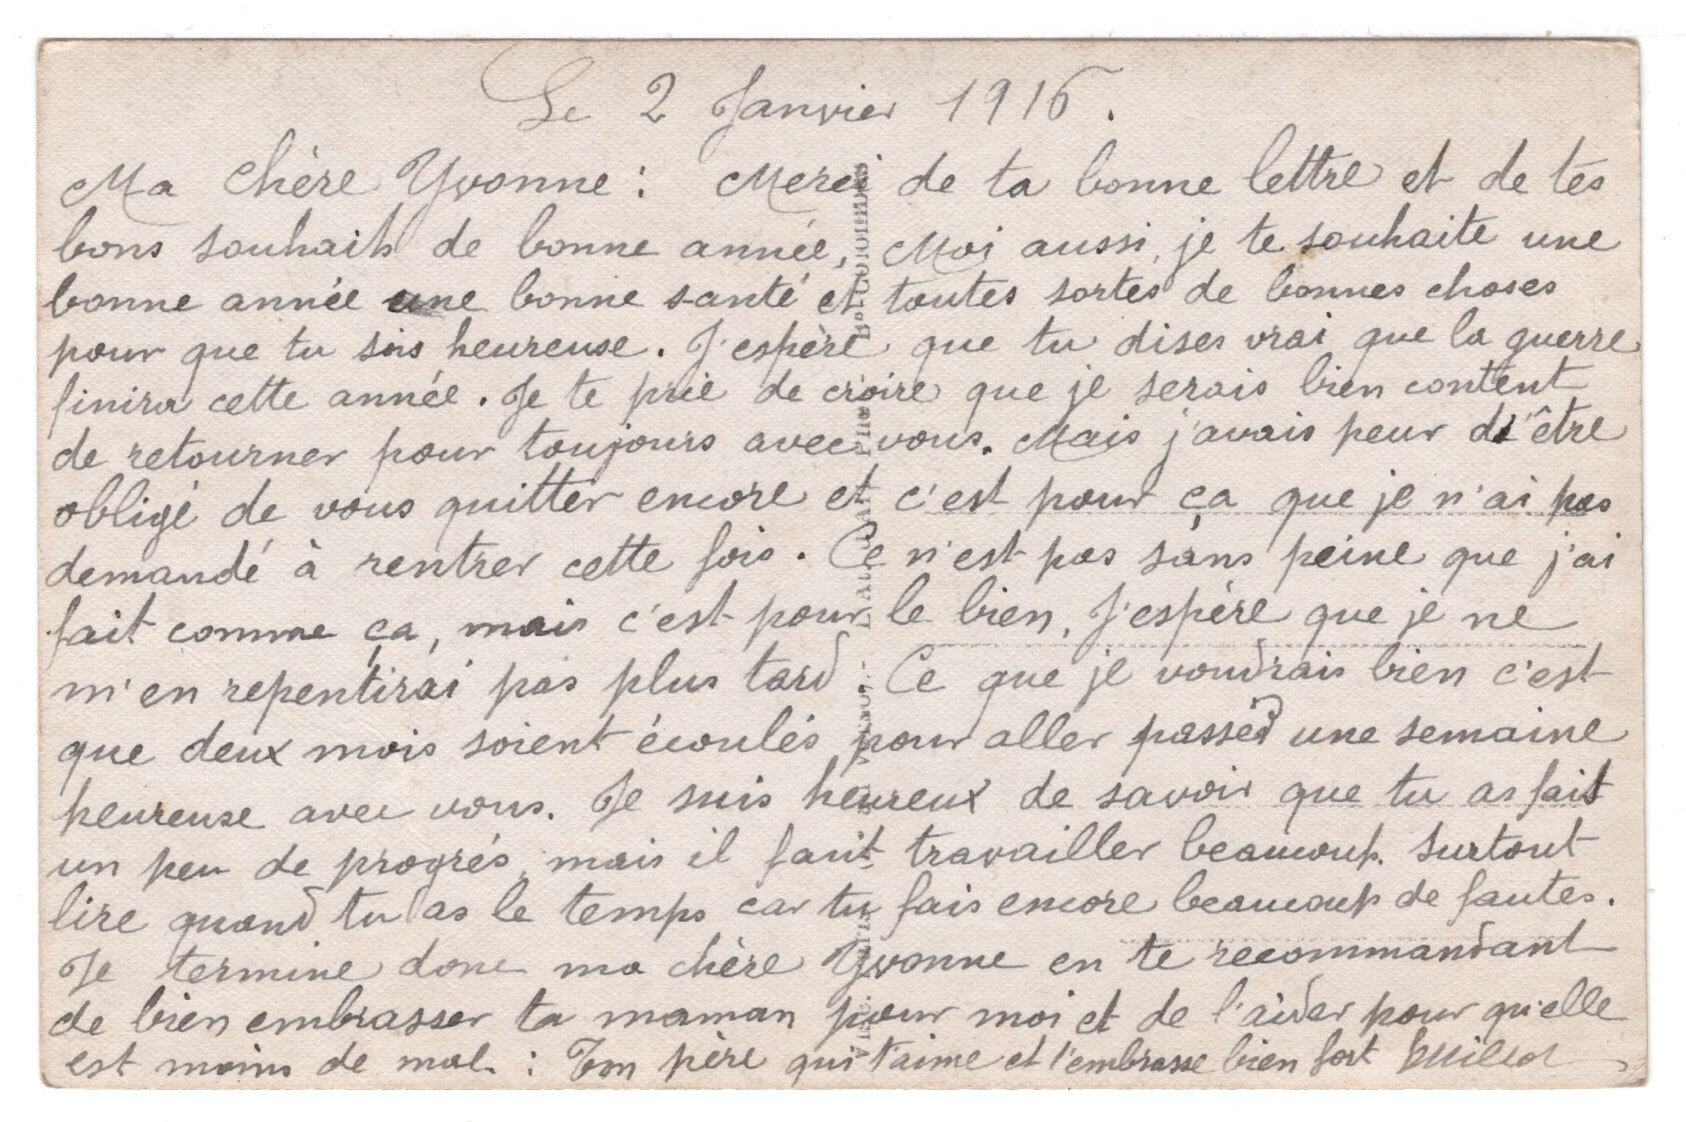 Le 2 Janvier 1916.
Ma chère Yvonne : Merci de ta bonne lettre et de tes
bons souhaits de bonne année, Moi aussi, je te souhaite une
bonne année une bonne santé et toutes sortes de bonnes choses
pour que tu sois heureuse. J'espère que tu dises vrai que la guerre
finira cette année. Je te prie de croire que je serais bien content
de retourner pour toujours avec vous. Mais j'avais peur d'être
obligé de vous quitter encore et c'est pour ça que je n'ai pas
demandé à rentrer cette fois. Ce n'est pas sans peine que j'ai
fait comme ça, mais c'est pour le bien, J'espère que je ne
m'en repentirai pas plus tard. Ce que je voudrais bien c'est
que deux mois soient écoulés pour aller passer une semaine
heureuse avec vous. Je suis heureux de savoir que tu as fait
un peu de progrés, mais il faut travailler beaucoup. Surtout
lire quand tu as le temps car tu fais encore beaucoup de fautes.
Je termine donc ma chère Yvonne en te recommandant
de bien embrasser ta maman pour moi et de l'aider pour qu'elle
est moins de mal. : Ton père qui t'aime et t'embrasse bien fort